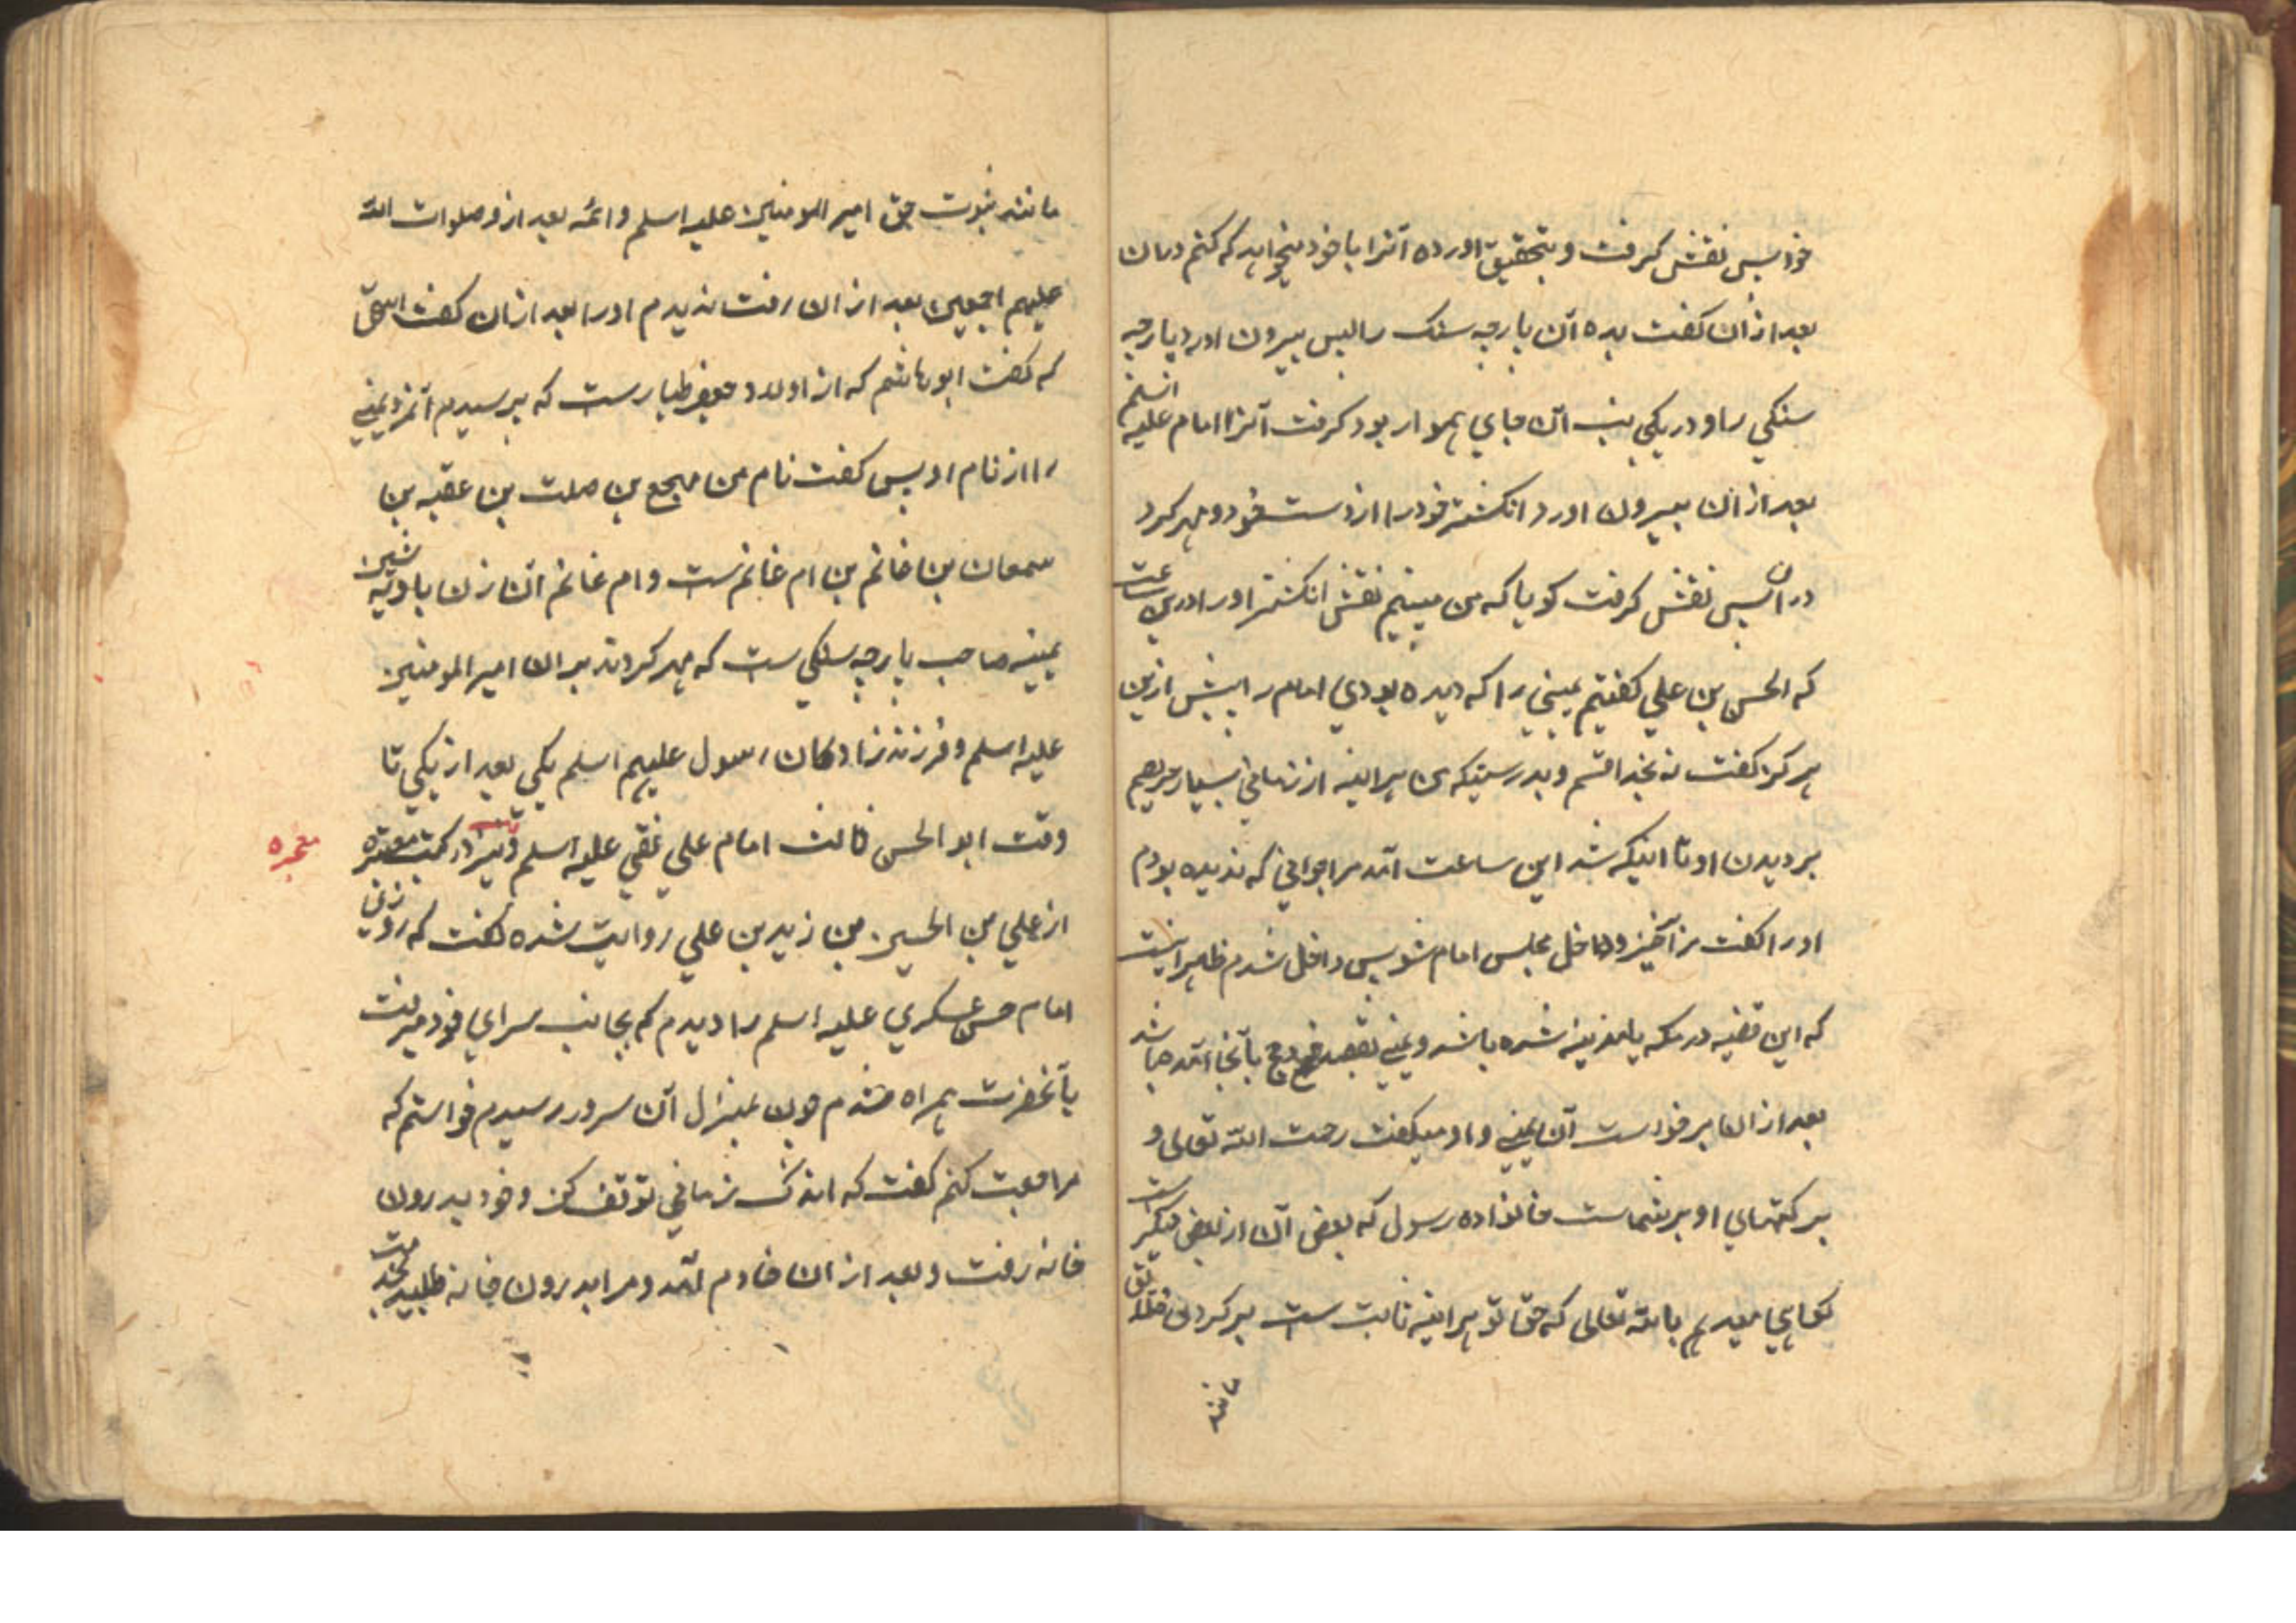 خود پس نقش گرفت و بتحقیق اورده آنرا با خود میخواهد که کنم در ان
بعد ازان کفت بده آن پارچه سنک را پس بیرون اورد پارچه
سنکی را و در یکی جانب آن جای هموار بود کرفت آنرا امام علیه السلم
بعد از ان بیرون اورد انکشتر خود را از دست خود و مهر کرد
در ان پس نقش کرفت کویا که من میبینم نقش انکشتر او را درین ساعت
که الحسن بن علی کفتیم یمنی را که دیده بودی امام را پیش ازین
هرکز کفت نه بخدا قسم و بدرستیکه من هراینه از زمانی بسیار حریصم
بر دیدن او تا اینکه شد این ساعت آمد مرا جوانی که ندیده بودم
او را کفت برآخیز و داخل مجلس امام شو پس داخل شدم ظاهر اینست
که این قضیه در مکه یا مدینه شده باشد و یمنی بقصد حج بآنجا آمده باشد
بعد از ان برخواست آن یمنی و او میکفت رحمت الله تعالی و
برکتهای او بر شماست خانواده رسول که بعض آن از بعض دیکرست
کواهی میدهم بالله تعالی که حق تو هراینه ثابت ست بر کردن خلایق
مانند
مانند ثبوت حق امیر المومنین علیه اسلم و ائمه بعد از و صلوات الله
علیهم اجمعین بعد از ان رفت ندیدم او را بعد ازان کفت اسحق
که کفت ابو هاشم که از اولاد جعفر طیار ست که پرسیدم آنمرد یمنی
را از نام او پس کفت نام من مهجع بن صلت بن عقبه بن
سمعان بن غانم بن ام غانم ست و ام غانم آن زن بادیه نشین
یمنیه صاحب پارچه سنکی ست که مهر کردند بر ان امیر المومنین
علیه اسلم و فرزندزادکان رسول علیهم اسلم یکی بعد از یکی تا
وقت ابو الحسن ثالث امام علی نقی علیه اسلم و نیز در کتب معتبره
معجزه
از علی بن الحسین بن زید بن علی روایت شده کفت که روزی
امام حسن عسکری علیه اسلم را دیدم که بجانب سرای خود میرفت
بآنحضرت همراه شدم چون بمنزل آن سرور رسیدم خواستم که
مراجعت کنم کفت که اندک زمانی توقف کن و خود بدرون
خانه رفت و بعد از ان خادم آمد و مرا بدرون خانه طلبید بخدمت